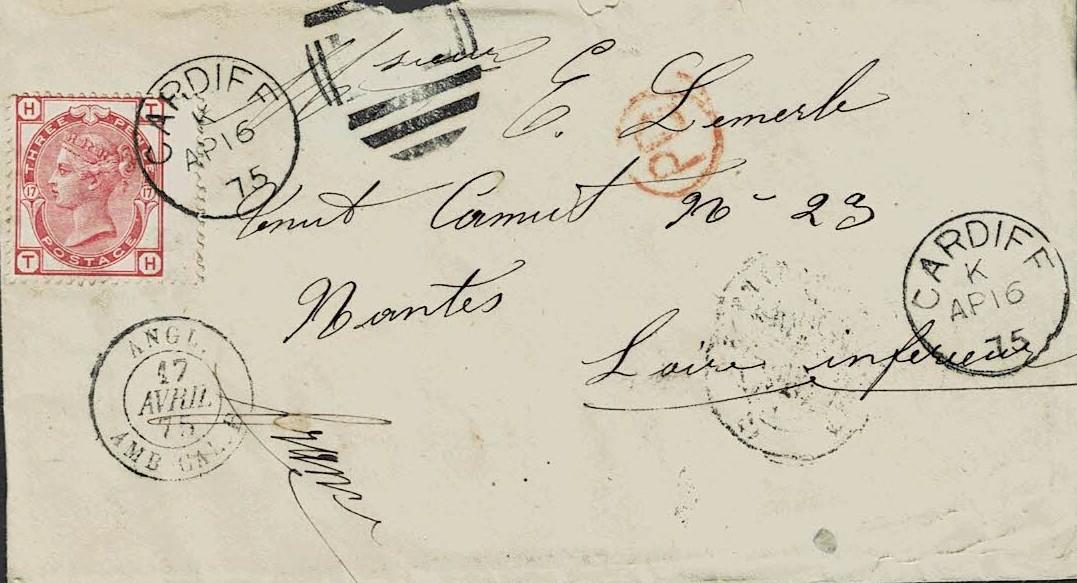 H T
THREE PENCE
17 17
POSTAGE
T H
CARDIFF
K
AP16
75
E. Lemerle
PD
Camut No 23
Nantes
Loire inferieure
CARDIFF
K
AP16
75
ANGL.
17
AVRIL
75
AMB. CAL.